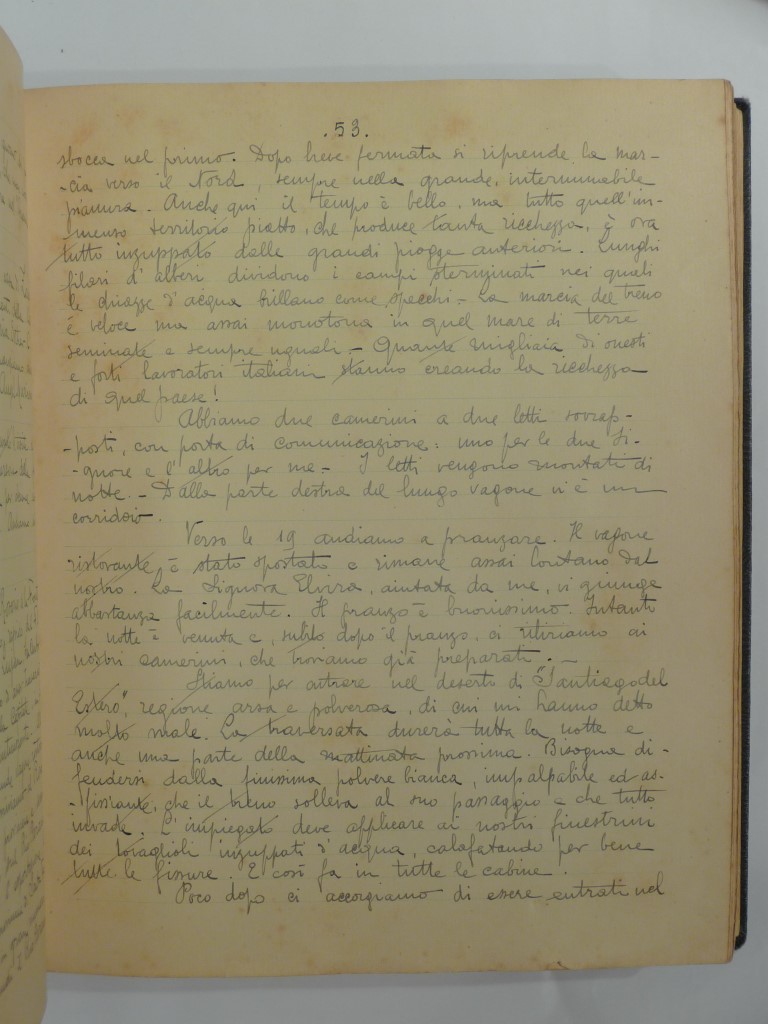 .53.
sbocca nel primo. Dopo breve fermata si riprende la mar-
-cia verso il Nord, sempre nella grande, interminabile
pianura. Anche qui il tempo è bello, ma tutto quell'im-
menso territorio piatto, che produce tanta ricchezza, è ora
tutto inzuppato dalle grandi piogge anteriori. Lunghi
filari d'alberi dividono i campi sterminati nei quali
le chiazze d'acqua brillano come specchi. - La marcia del treno
è veloce ma assai monotona in quel mare di terre
seminate e sempre uguali. - Quante migliaia di onesti
e forti lavoratori italiani stanno creando la ricchezza
di quel paese!
Abbiamo due camerini a due letti sovrap-
-posti, con porta di comunicazione: uno per le due Si-
-gnore e l'altro per me. - I letti vengono montati di
notte. - Dalla parte destra del lungo vagone vi è un
corridoio.
Verso le 19 andiamo a pranzare. Il vagone
ristorante è stato spostato e rimane assai lontano dal
nostro. La Signora Elvira, aiutata da me, vi giunge
abbastanza facilmente. Il pranzo è buonissimo. Intanto
la notte è venuta e, subito dopo il pranzo, ci ritiriamo ai
nostri camerini, che troviamo già preparati. -
Stiamo per entrare nel deserto di "Santiago del
Estero", regione arsa e polverosa, di cui mi hanno detto
molto male. La traversata durerà tutta la notte e
anche una parte della mattinata prossima. Bisogna di-
fendersi dalla finissima polvere bianca, impalpabile ed as-
-fissiante, che il treno solleva al suo passaggio e che tutto
invade. L'impiegato deve applicare ai nostri finestrini
dei tovaglioli inzuppati d'acqua, calafatando per bene
tutte le fissure. E così fa in tutte le cabine.
Poco dopo ci accorgiamo di essere entrati nel